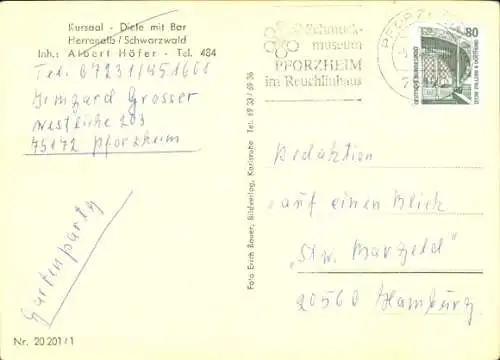 Kursaal - Diele mit Bar
Herrenalb / Schwarzwald
Inh: Albert Höfer - Tel. 484
Tel. 07231/451601
Irmgard Grosser
westliche 203
75172 Pforzheim
Gartenparty
Nr. 20 201/1
Foto Erich Bauer, Bildverlag, Karlsruhe Tel. 19 33/69 36
Schmuck-
museum
PFORZHEIM
im Reuchlinhaus
80
DEUTSCHE BUNDESPOST
Redaktion
auf einen Blick
20560 Hamburg